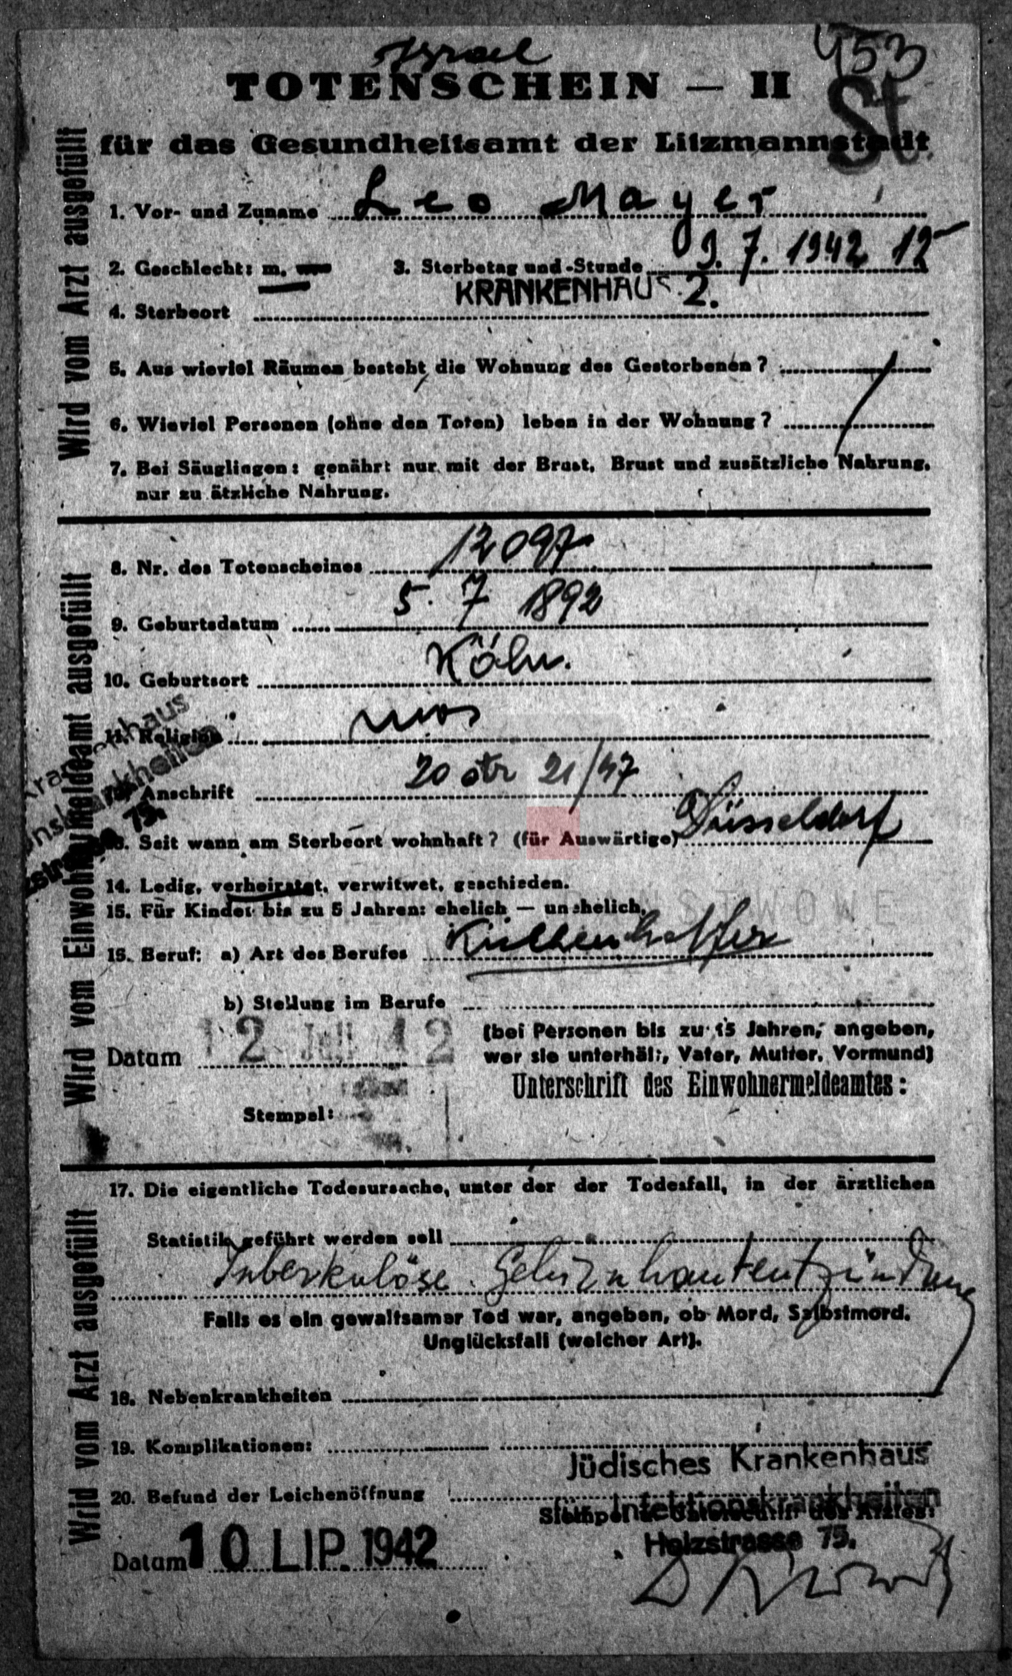 Israel
453
TOTENSCHEIN — II
St.
für das Gesundheitsamt der Litzmannstadt
1. Vor- und Zuname Leo Mayer
2. Geschlecht: m. 3. Sterbetag und -Stunde 9. 7. 1942 12
4. Sterbeort KRANKENHAUS 2.
5. Aus wieviel Räumen besteht die Wohnung des Gestorbenen?
6. Wieviel Personen (ohne den Toten) leben in der Wohnung?
7. Bei Säuglingen: genährt nur mit der Brust, Brust und zusätzliche Nahrung,
nur zu ätzliche Nahrung.
Wird vom Arzt ausgefüllt
8. Nr. des Totenscheines 12097
9. Geburtsdatum 5. 7 1892
10. Geburtsort Köln.
11. Religion mos
12. Anschrift 20 str 21/47
13. Seit wann am Sterbeort wohnhaft? (für Auswärtige) Düsseldorf
14. Ledig, verheiratet, verwitwet, geschieden.
15. Für Kinder bis zu 5 Jahren: ehelich — unehelich.
16. Beruf: a) Art des Berufes
b) Stellung im Berufe
(bei Personen bis zu 15 Jahren, angeben,
wer sie unterhält, Vater, Mutter, Vormund)
Datum 12 Juli 42
Unterschrift des Einwohnermeldeamtes:
Stempel:
Wird vom Einwohnermeldeamt ausgefüllt
Krankenhaus
75.
17. Die eigentliche Todesursache, unter der der Todesfall, in der ärztlichen
Statistik geführt werden soll
Tuberkulöse Gehirnhautentzündung
Falls es ein gewaltsamer Tod war, angeben, ob Mord, Selbstmord,
Unglücksfall (welcher Art).
18. Nebenkrankheiten
19. Komplikationen:
Jüdisches Krankenhaus
20. Befund der Leichenöffnung
für Infektionskrankheiten
Stempel
Holzstrasse 75.
Datum 10 LIP. 1942
Wrid vom Arzt ausgefüllt